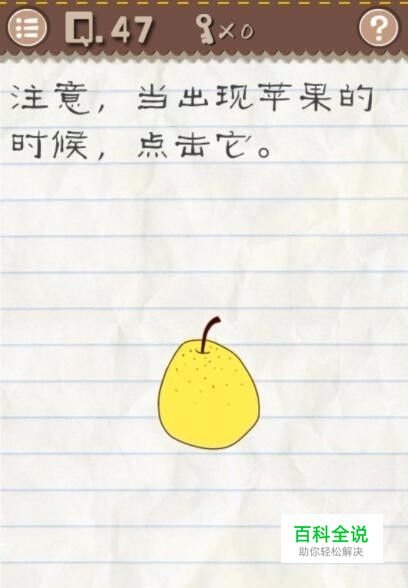 Q.47
×0
?
注意，当出现苹果的
时候，点击它。
百科全说
助你轻松解决